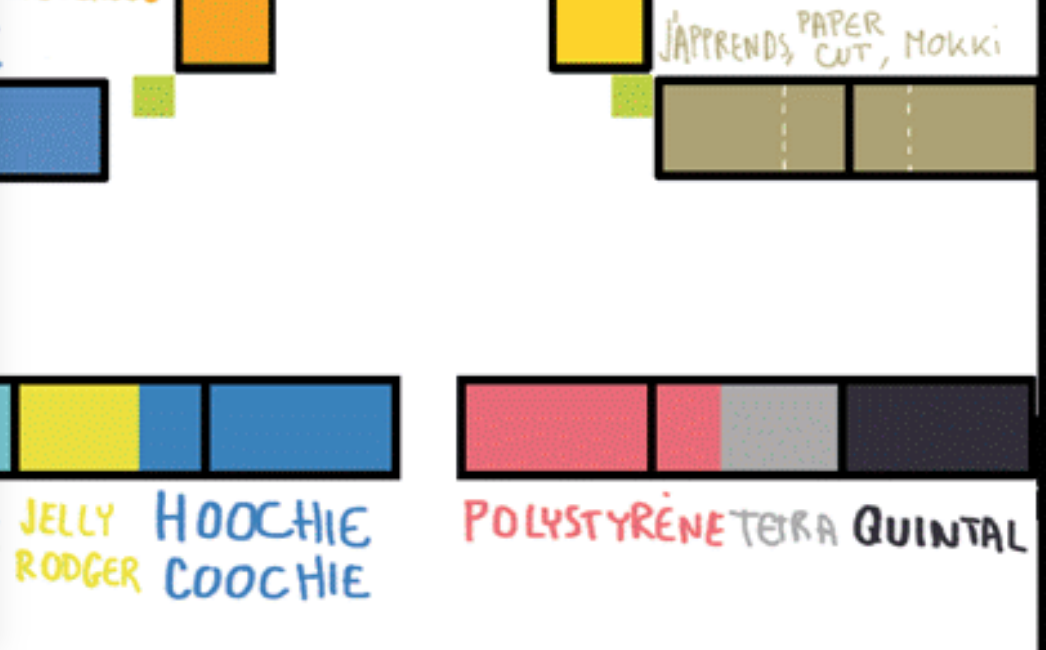 J'APPRENDS, PAPER CUT, MOKKi
JELLY RODGER
HOOCHIE COOCHIE
POLYSTYRÈNE
TETRA
QUINTAL